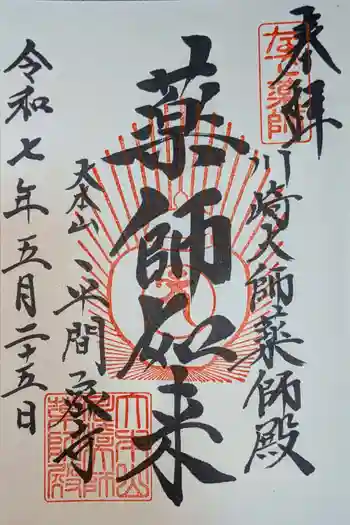 奉拝
なで薬師
川崎大師薬師殿
薬師如来
大本山
平間寺
令和七年五月二十五日